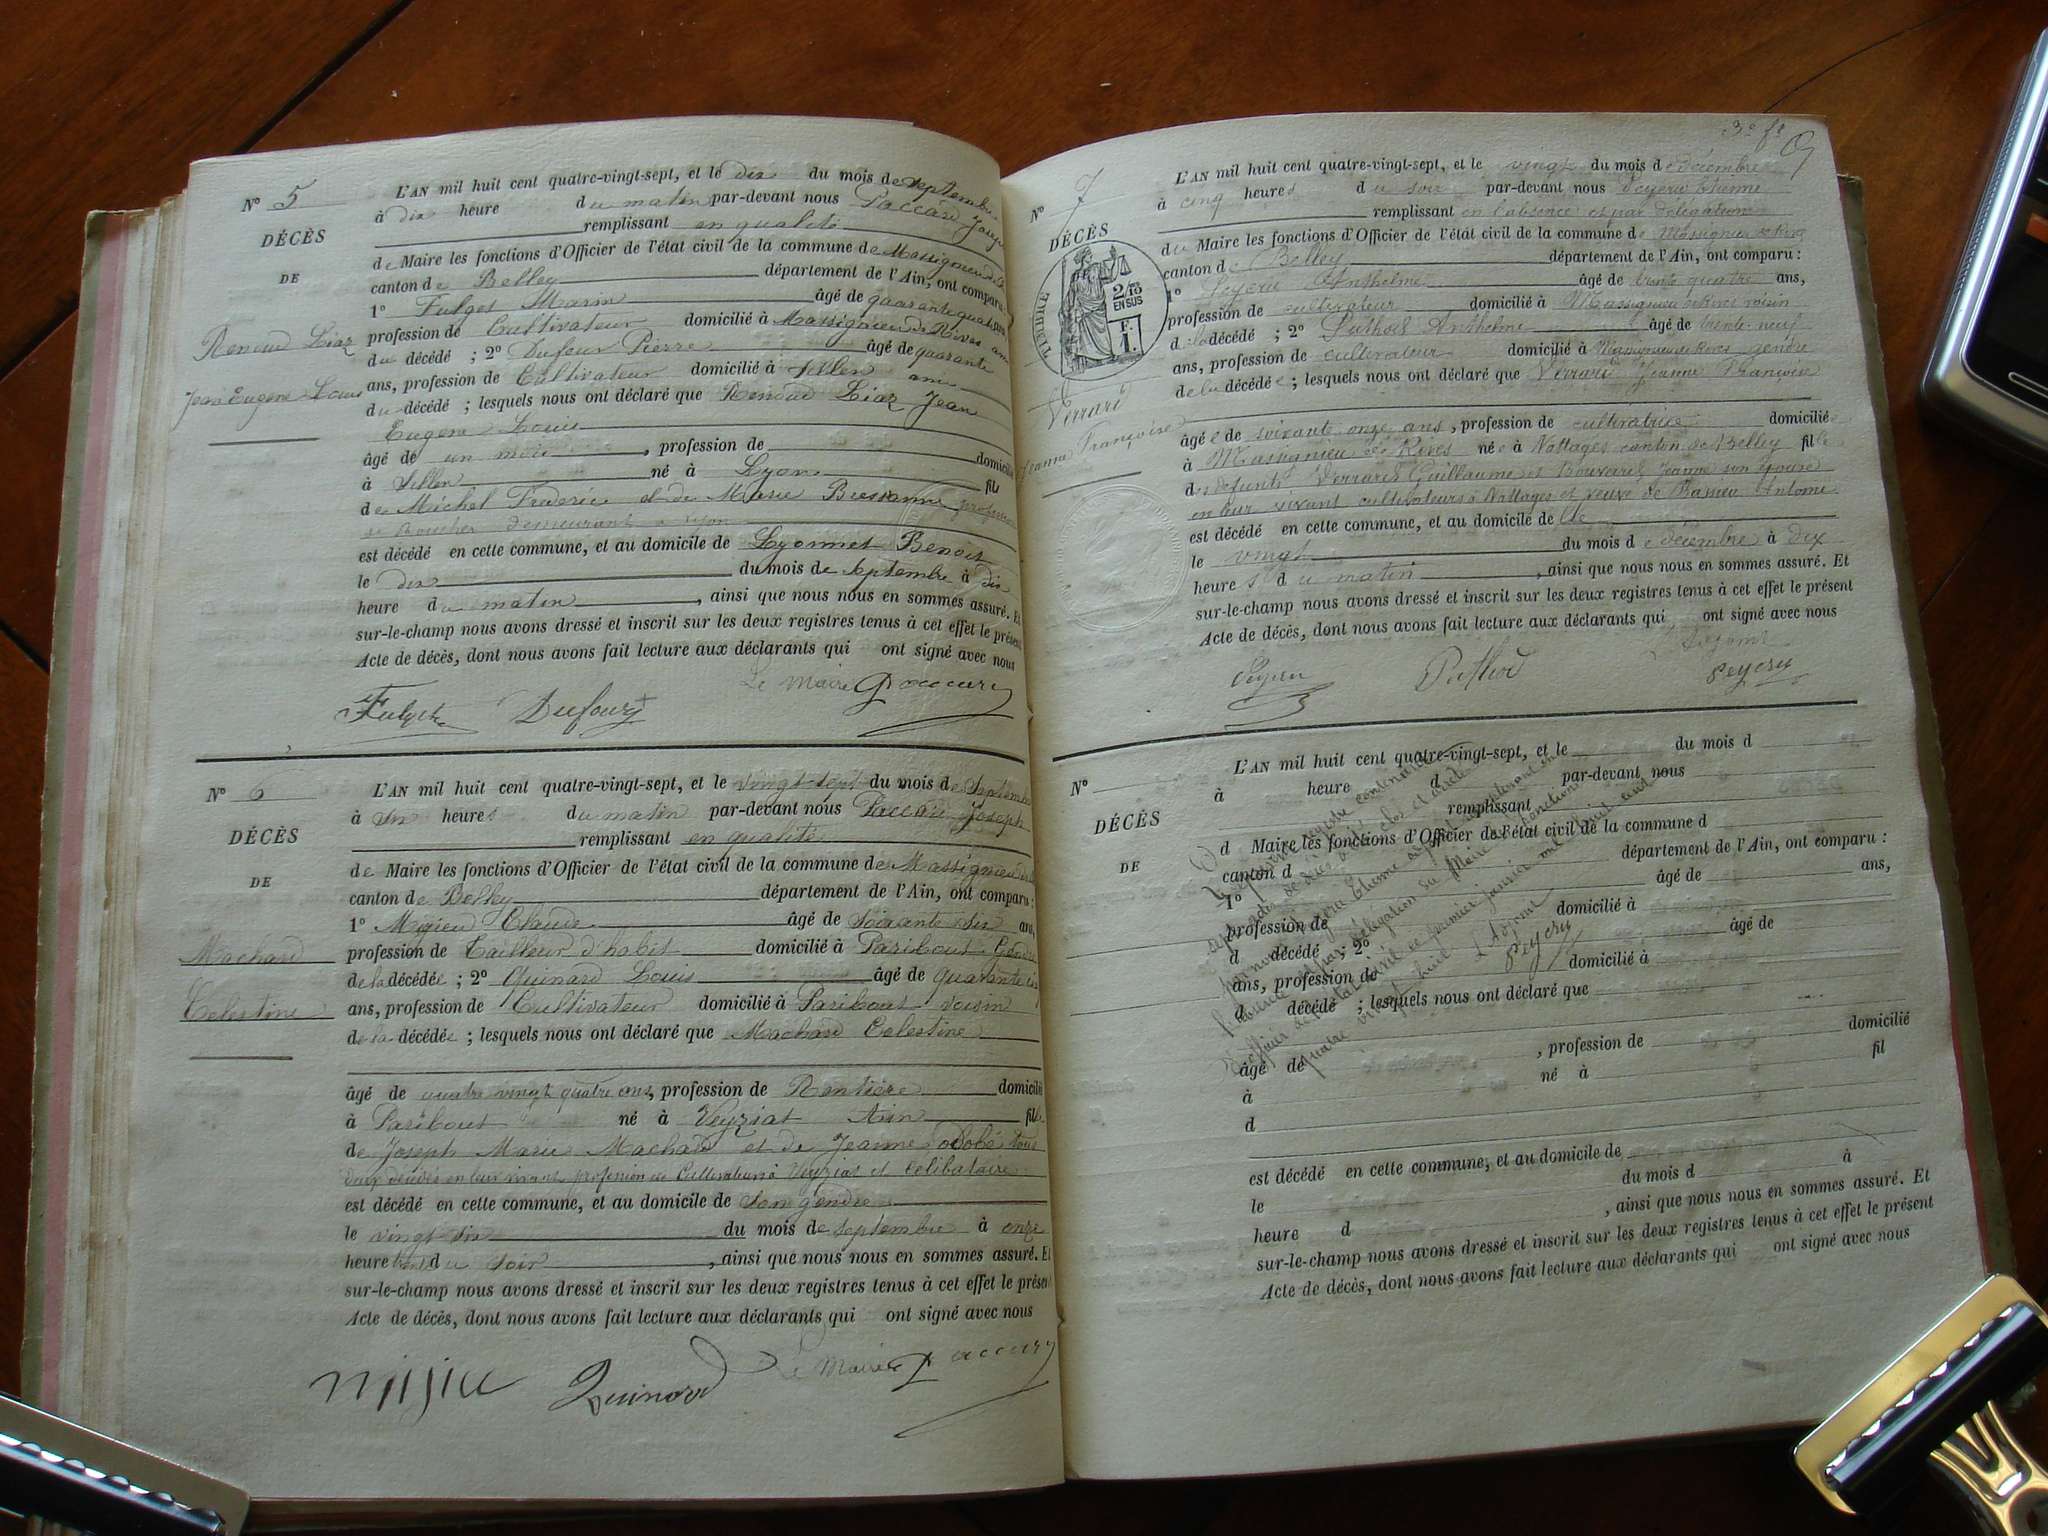 N° 5
DÉCÈS
DE
Renoud Liaz
Jean Eugène Louis
L'AN mil huit cent quatre-vingt-sept, et le dix du mois de septembre
à dix heure du matin par-devant nous Paccard Joseph
remplissant en qualité
de Maire les fonctions d'Officier de l'état civil de la commune de Massignieu de
canton de Belley département de l'Ain, ont comparu :
1° Fulget Marin âgé de quarante quatre ans
profession de Cultivateur domicilié à Massignieu de Rives ami
du décédé ; 2° Dufour Pierre âgé de quarante
ans, profession de Cultivateur domicilié à ami
du décédé ; lesquels nous ont déclaré que Renoud Liaz Jean
Eugène Louis
âgé de un mois , profession de domicilié
à né à Lyon fils
de Michel Frederic et de Marie profession
de Boucher demeurant a Lyon
est décédé en cette commune, et au domicile de Lyonnet Benoit
le dix du mois de septembre à dix
heure du matin , ainsi que nous nous en sommes assuré. Et
sur-le-champ nous avons dressé et inscrit sur les deux registres tenus à cet effet le présent
Acte de décès, dont nous avons fait lecture aux déclarants qui ont signé avec nous
Le Maire
Fulget Dufour
N° 6
DÉCÈS
DE
Machard
Celestine
L'AN mil huit cent quatre-vingt-sept, et le vingt-sept du mois de Septembre
à six heures du matin par-devant nous Paccard Joseph
remplissant en qualité
de Maire les fonctions d'Officier de l'état civil de la commune de Massignieu de
canton de Belley département de l'Ain, ont comparu :
1° Claude âgé de soixante six ans,
profession de Tailleur d'habit domicilié à Paribout Gendre
de la décédée ; 2° Quinard Louis âgé de quarante six
ans, profession de Cultivateur domicilié à Paribout voisin
de la décédée ; lesquels nous ont déclaré que Machard Celestine
âgé de quatre vingt quatre ans, profession de Rentière domicilié
à Paribout né à Veyziat Ain fille
de Joseph Marie Machard et de Jeanne Odobé tous
deux décédés en leur vivant profession de Cultivateur à Veyziat et Celibataire
est décédé en cette commune, et au domicile de son gendre
le vingt six du mois de septembre à onze
heure du soir , ainsi que nous nous en sommes assuré. Et
sur-le-champ nous avons dressé et inscrit sur les deux registres tenus à cet effet le présent
Acte de décès, dont nous avons fait lecture aux déclarants qui ont signé avec nous
Quinard Le Maire
3e ft
N° 7
DÉCÈS
TIMBRE
2/13
EN SUS
F.
1.
Verrard
Jeanne Françoise
L'AN mil huit cent quatre-vingt-sept, et le vingt du mois de décembre
à cinq heures du soir par-devant nous Peyeru Etienne
remplissant en l'absence et par délégation
du Maire les fonctions d'Officier de l'état civil de la commune de Massignieu de Rives
canton de Belley département de l'Ain, ont comparu :
1° Peyeru Anthelme âgé de trente quatre ans,
profession de cultivateur domicilié à Massignieu de Rives voisin
de la décédé ; 2° Puthod Anthelme âgé de trente-neuf
ans, profession de cultivateur domicilié à Massignieu de Rives gendre
de la décédée ; lesquels nous ont déclaré que Verrard Jeanne Françoise
âgée de soixante onze ans, profession de cultivatrice domiciliée
à Massignieu de Rives née à Nattages canton de Belley fille
des défunts Verrard Guillaume et Bouvard Jeanne son épouse
en leur vivant cultivateurs à Nattages et veuve de Antoine
est décédé en cette commune, et au domicile de
le vingt du mois de décembre à dix
heures du matin , ainsi que nous nous en sommes assuré. Et
sur-le-champ nous avons dressé et inscrit sur les deux registres tenus à cet effet le présent
Acte de décès, dont nous avons fait lecture aux déclarants qui ont signé avec nous
L'adjoint
Peyeru Puthod Peyeru
N°
DÉCÈS
DE
L'AN mil huit cent quatre-vingt-sept, et le du mois d
à heure d par-devant nous
remplissant
d Maire les fonctions d'Officier de l'état civil de la commune d
canton d département de l'Ain, ont comparu :
1° âgé de ans,
profession de domicilié à
d décédé ; 2° âgé de
ans, profession de domicilié à
d décédé ; lesquels nous ont déclaré que
âgé de , profession de domicilié
à né à fil
d
est décédé en cette commune, et au domicile de
le du mois d à
heure d , ainsi que nous nous en sommes assuré. Et
sur-le-champ nous avons dressé et inscrit sur les deux registres tenus à cet effet le présent
Acte de décès, dont nous avons fait lecture aux déclarants qui ont signé avec nous
Le présent registre contenant
sept actes de décès a été clos et arrêté
par nous Peyeru Etienne adjoint
l'absence et par délégation du Maire fonctions
d'officier de l'état civil ce premier janvier mil huit cent
quatre vingt huit
L'adjoint
Peyeru